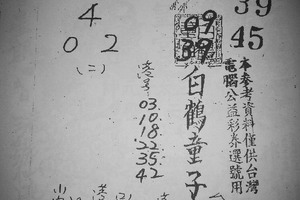 39
45
本參考資料僅供台灣
電腦公益彩券選號用
09
39
白鶴童子
03.
10.
18.
22.
35.
42
4
0 2
(二)